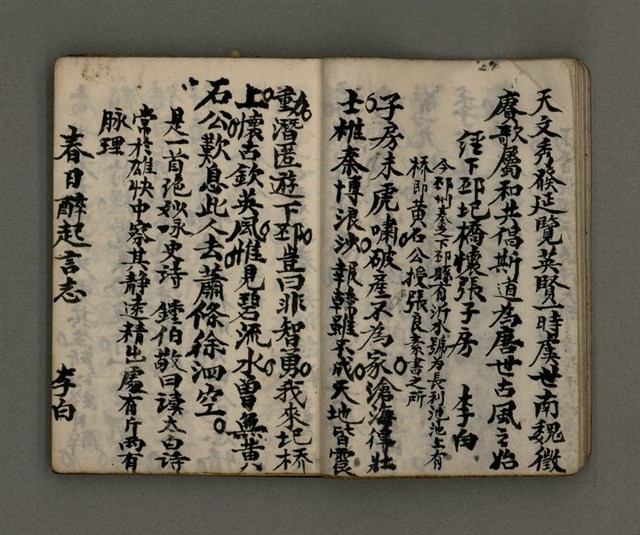 天文秀發延覽英賢一時虞世南魏徵
賡歌屬和共倡斯道為唐世古風之始
經下邳圯橋懷張子房 李白
今邳州秦之下邳縣有沂水號為長利池池上有
橋即黃石公授張良素書之所
子房未虎嘯破產不為家滄海得壯
士椎秦博浪沙報韓雖不成天地皆震
動潛匿遊下邳豈曰非智勇我來圯橋
上懷古欽英風惟見碧流水曾無黃
石公歎息此人去蕭條徐泗空。
是一首絕妙咏史詩 鍾伯敬曰讀太白詩
常於雄快中察其靜遠精出處有斤两有
脉理
春日醉起言志 李白